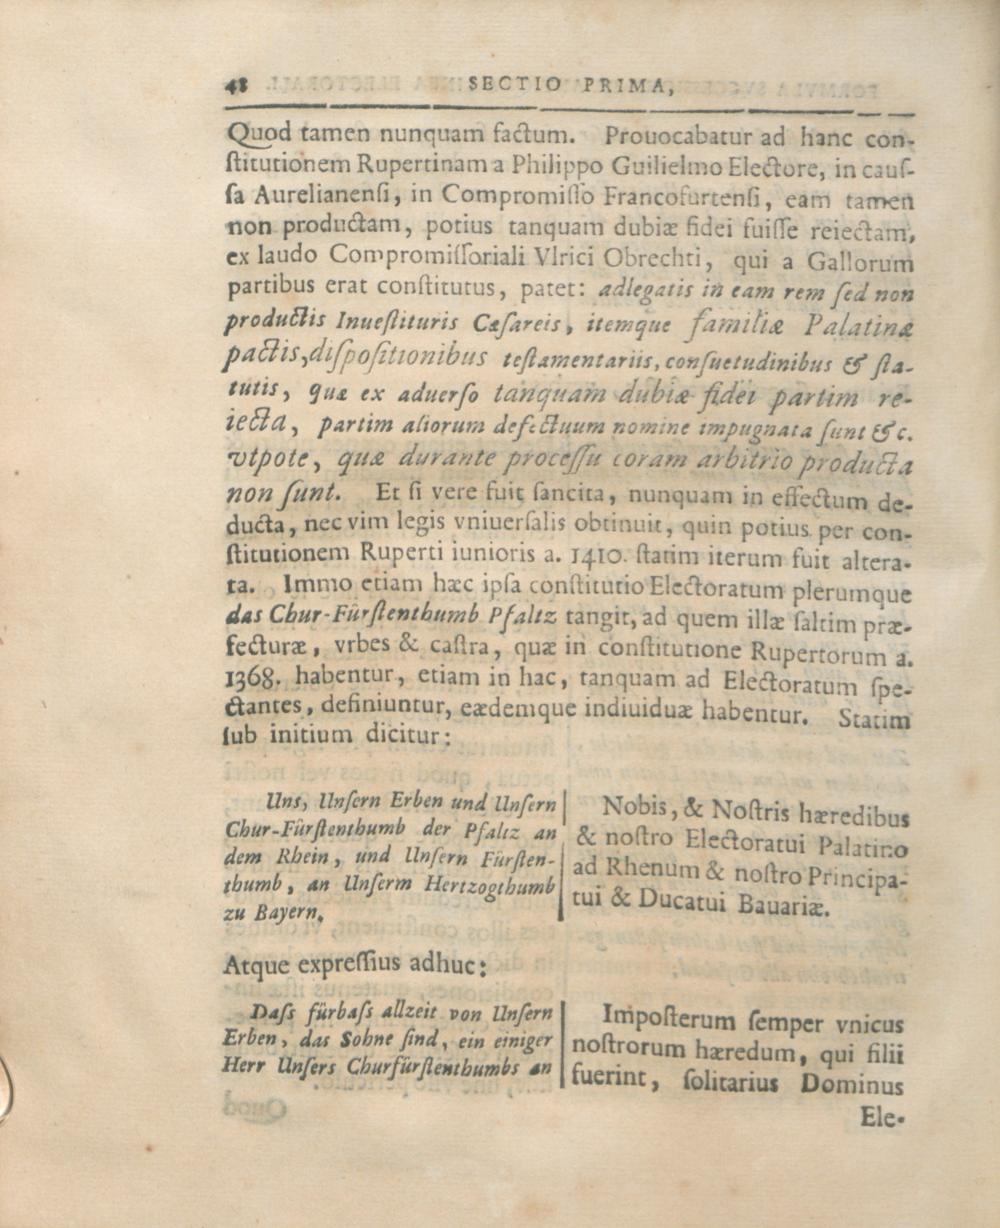 48 SECTIO PRIMA,
Quod tamen nunquam factum. Prouocabatur ad hanc con-
ſtitutionem Rupertinam a Philippo Guilielmo Electore, in cauſ-
ſa Aurelianenſi, in Compromiſſo Francofurtenſi, eam tamen
non productam, potius tanquam dubiæ fidei fuiſſe reiectam,
ex laudo Compromiſſoriali Vlrici Obrechti, qui a Gallorum
partibus erat conſtitutus, patet: adlegatis in eam rem ſed non
productis Inueſtituris Cæſareis, itemque familiæ Palatinæ
pactis, diſpoſitionibus teſtamentariis, conſuetudinibus & ſta-
tutis, quæ ex aduerſo tanquam dubiæ fidei partim re-
iecta, partim aliorum defectuum nomine impugnata ſunt &c.
vtpote, quæ durante proceſſu coram arbitrio producta
non ſunt. Et ſi vere fuit ſancita, nunquam in effectum de-
ducta, nec vim legis vniuerſalis obtinuit, quin potius per con-
ſtitutionem Ruperti iunioris a. 1410. ſtatim iterum fuit altera-
ta. Immo etiam hæc ipſa conſtitutio Electoratum plerumque
das Chur-Fürſtenthumb Pfaltz tangit, ad quem illæ ſaltim præ-
fecturæ, vrbes & caſtra, quæ in conſtitutione Rupertorum a.
1368. habentur, etiam in hac, tanquam ad Electoratum ſpe-
ctantes, definiuntur, eædemque indiuiduæ habentur. Statim
ſub initium dicitur:
Uns, Unſern Erben und Unſern
Chur-Fürſtenthumb der Pfaltz an
dem Rhein, und Unſern Fürſten-
thumb, an Unſerm Hertzogthumb
zu Bayern.
Nobis, & Noſtris hæredibus
& noſtro Electoratui Palatino
ad Rhenum & noſtro Principa-
tui & Ducatui Bauariæ.
Atque expreſſius adhuc:
Daſs fürbaſs allzeit von Unſern
Erben, das Sohne ſind, ein einiger
Herr Unſers Churfürſtenthumbs an
Impoſterum ſemper vnicus
noſtrorum hæredum, qui filii
fuerint, ſolitarius Dominus
Ele-